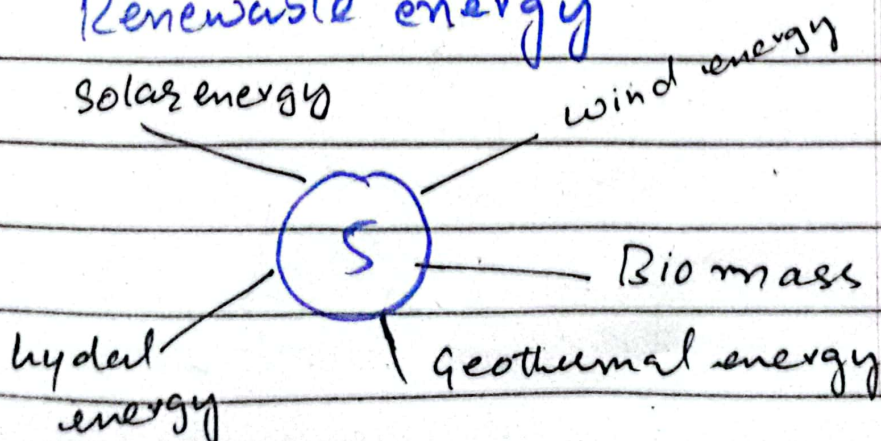 Renewable energy
solar energy
wind energy
S
Bio mass
hydel
energy
Geothermal energy